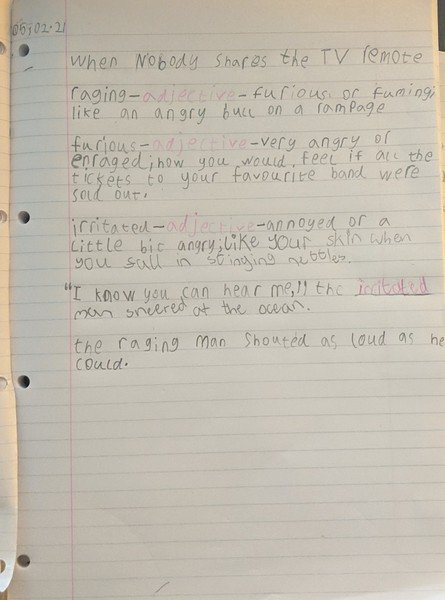 05.02.21
When Nobody shares the TV remote
raging-adjective-furious or fuming;
like an angry bull on a rampage
furious-adjective-very angry or
enraged;how you would feel if all the
tickets to your favourite band were
sold out.
irritated-adjective-annoyed or a
little bit angry;like your skin when
you fall in stinging nettles.
"I know you can hear me,!! the irritated
man sneered at the ocean.
the raging man shouted as loud as he
could.